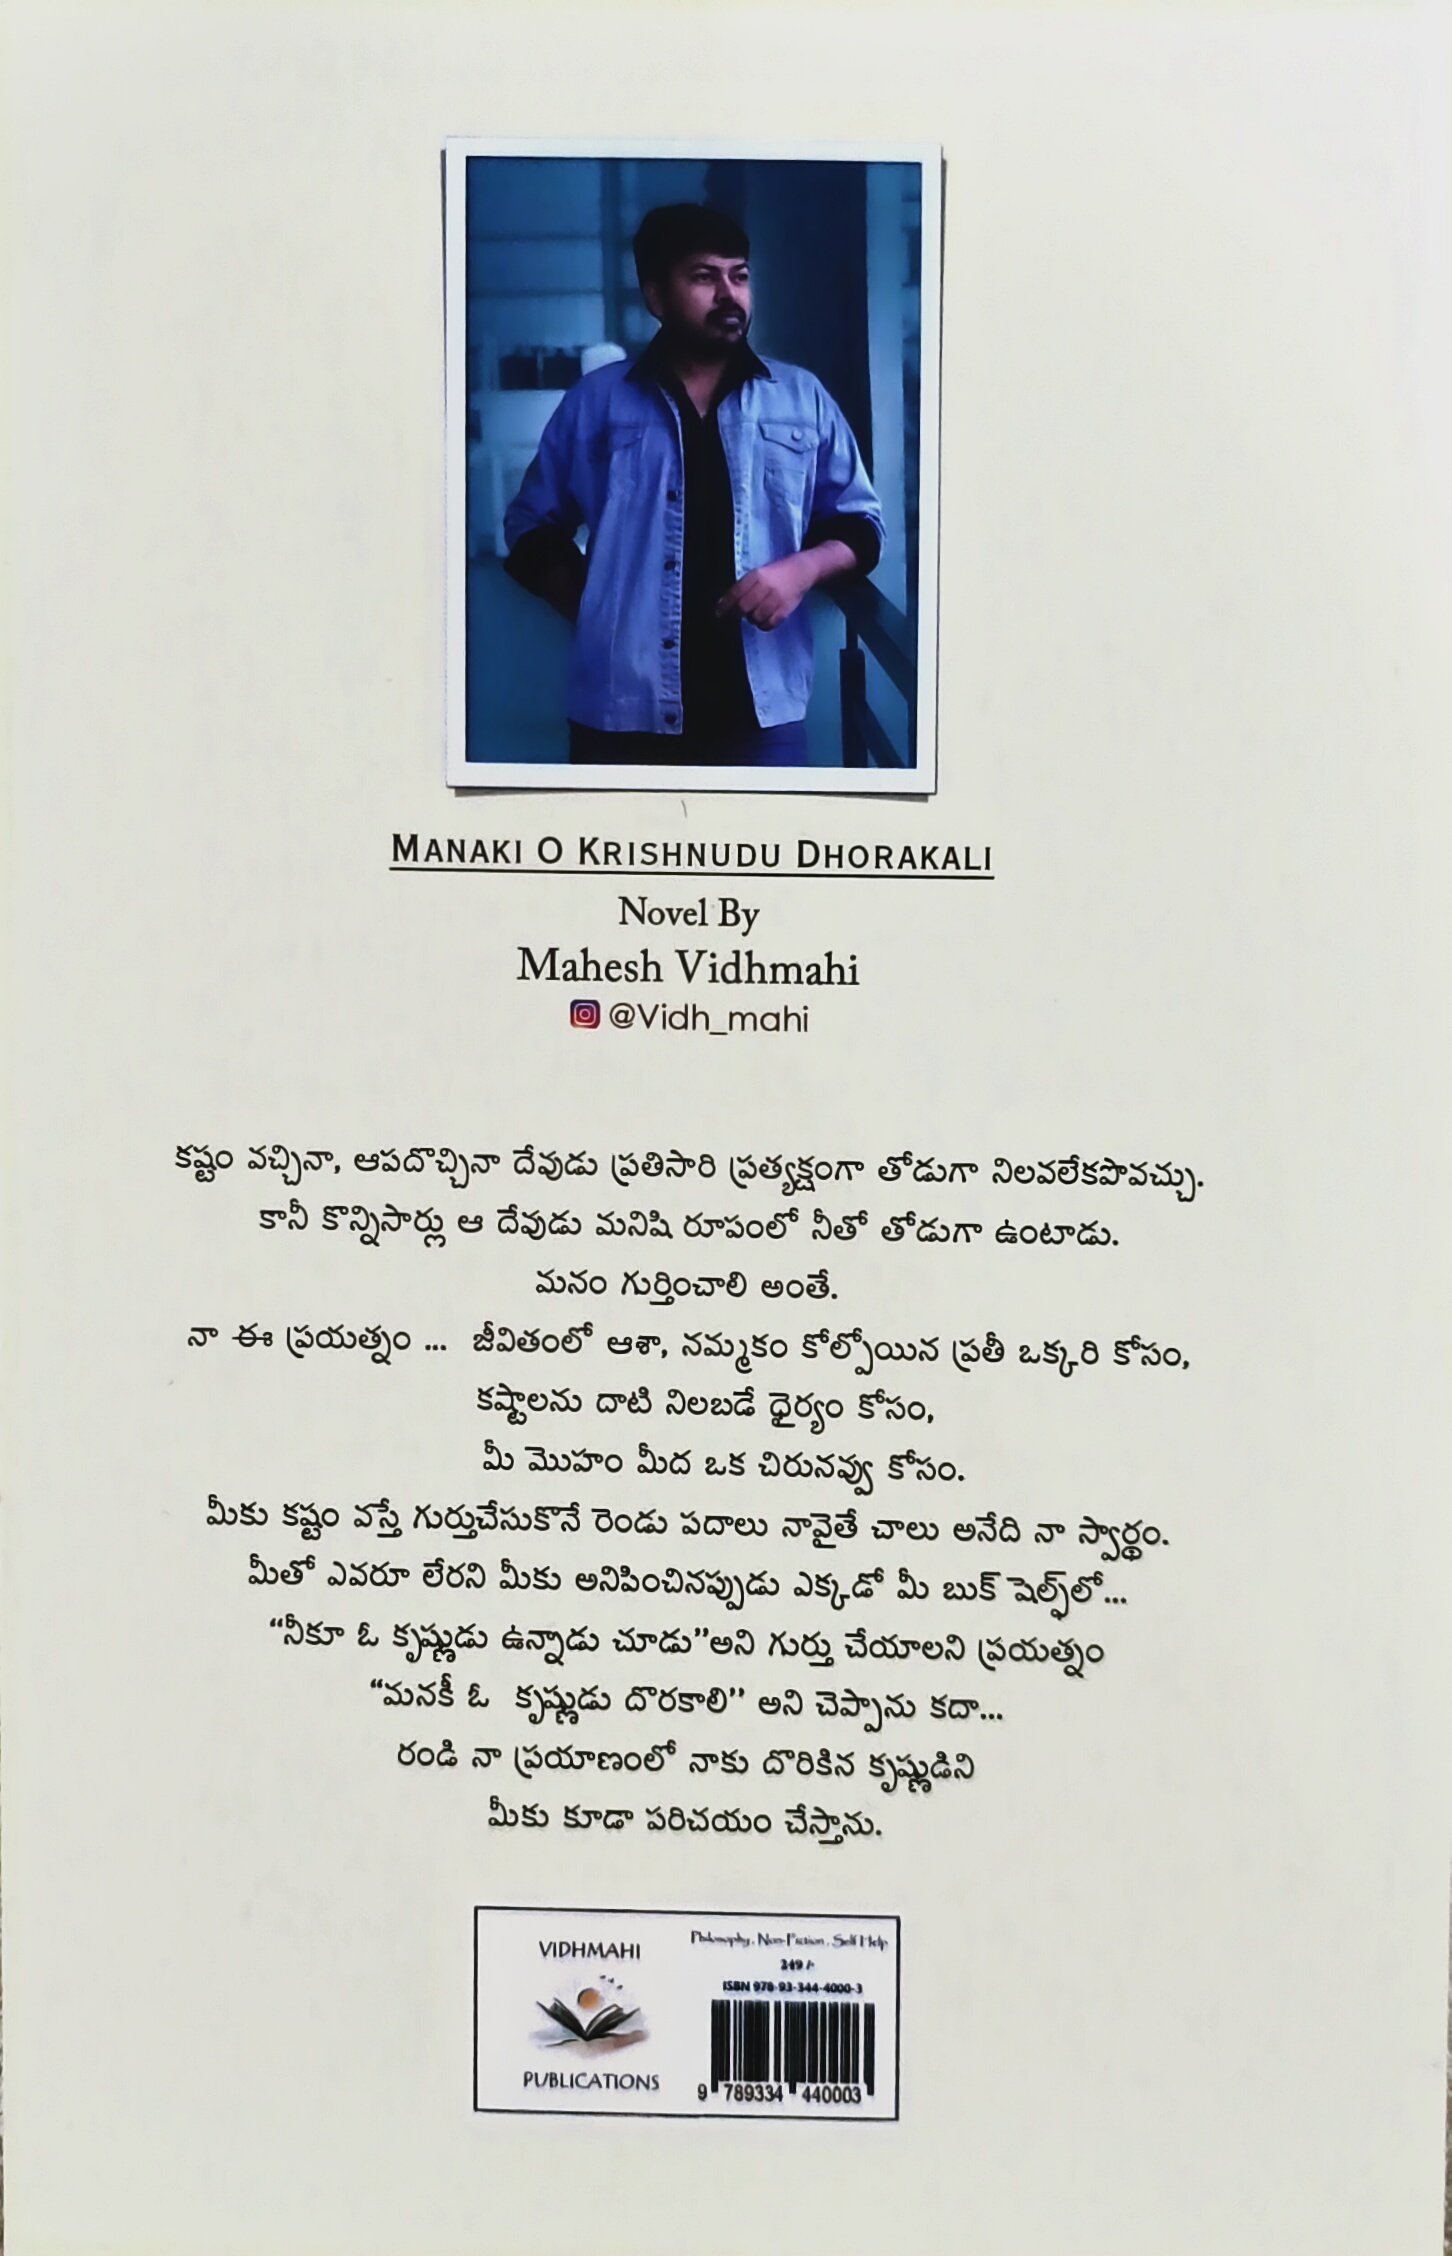 MANAKI O KRISHNUDU DHORAKALI
Novel By
Mahesh Vidhmahi
@Vidh_mahi
కష్టం వచ్చినా, ఆపదొచ్చినా దేవుడు ప్రతిసారి ప్రత్యక్షంగా తోడుగా నిలవలేకపోవచ్చు.
కానీ కొన్నిసార్లు ఆ దేవుడు మనిషి రూపంలో నీతో తోడుగా ఉంటాడు.
మనం గుర్తించాలి అంతే.
నా ఈ ప్రయత్నం ... జీవితంలో ఆశా, నమ్మకం కోల్పోయిన ప్రతీ ఒక్కరి కోసం,
కష్టాలను దాటి నిలబడే ధైర్యం కోసం,
మీ మొహం మీద ఒక చిరునవ్వు కోసం.
మీకు కష్టం వస్తే గుర్తుచేసుకొనే రెండు పదాలు నావైతే చాలు అనేది నా స్వార్థం.
మీతో ఎవరూ లేరని మీకు అనిపించినప్పుడు ఎక్కడో మీ బుక్ షెల్ఫ్‌లో...
“నీకూ ఓ కృష్ణుడు ఉన్నాడు చూడు”అని గుర్తు చేయాలని ప్రయత్నం
“మనకీ ఓ కృష్ణుడు దొరకాలి” అని చెప్పాను కదా...
రండి నా ప్రయాణంలో నాకు దొరికిన కృష్ణుడిని
మీకు కూడా పరిచయం చేస్తాను.
VIDHMAHI
PUBLICATIONS
Philosophy, Non-Fiction, Self Help
249 /-
ISBN 978-93-344-4000-3
9 789334 440003